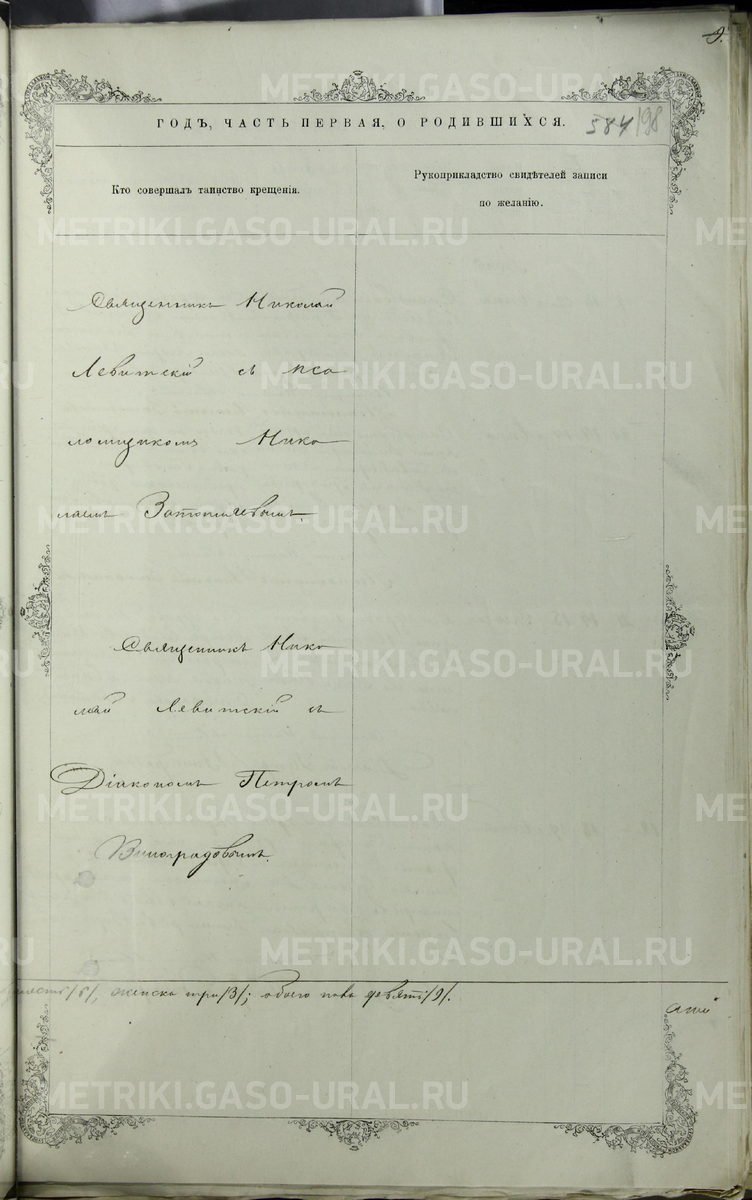 9.
ГОДЪ, ЧАСТЬ ПЕРВАЯ, О РОДИВШИХСЯ.
584/98
Кто совершалъ таинство крещенія.
Рукоприкладство свидѣтелей записи
по желанію.
Священникъ Николай
Левитскій съ пса
ломщикомъ Нико
лаемъ
Священникъ Нико
лай Левитскій съ
Діакономъ Петромъ
Виноградовымъ.
/6/, женска три /3/; обоего пола девять /9/.
METRIKI.GASO-URAL.RU